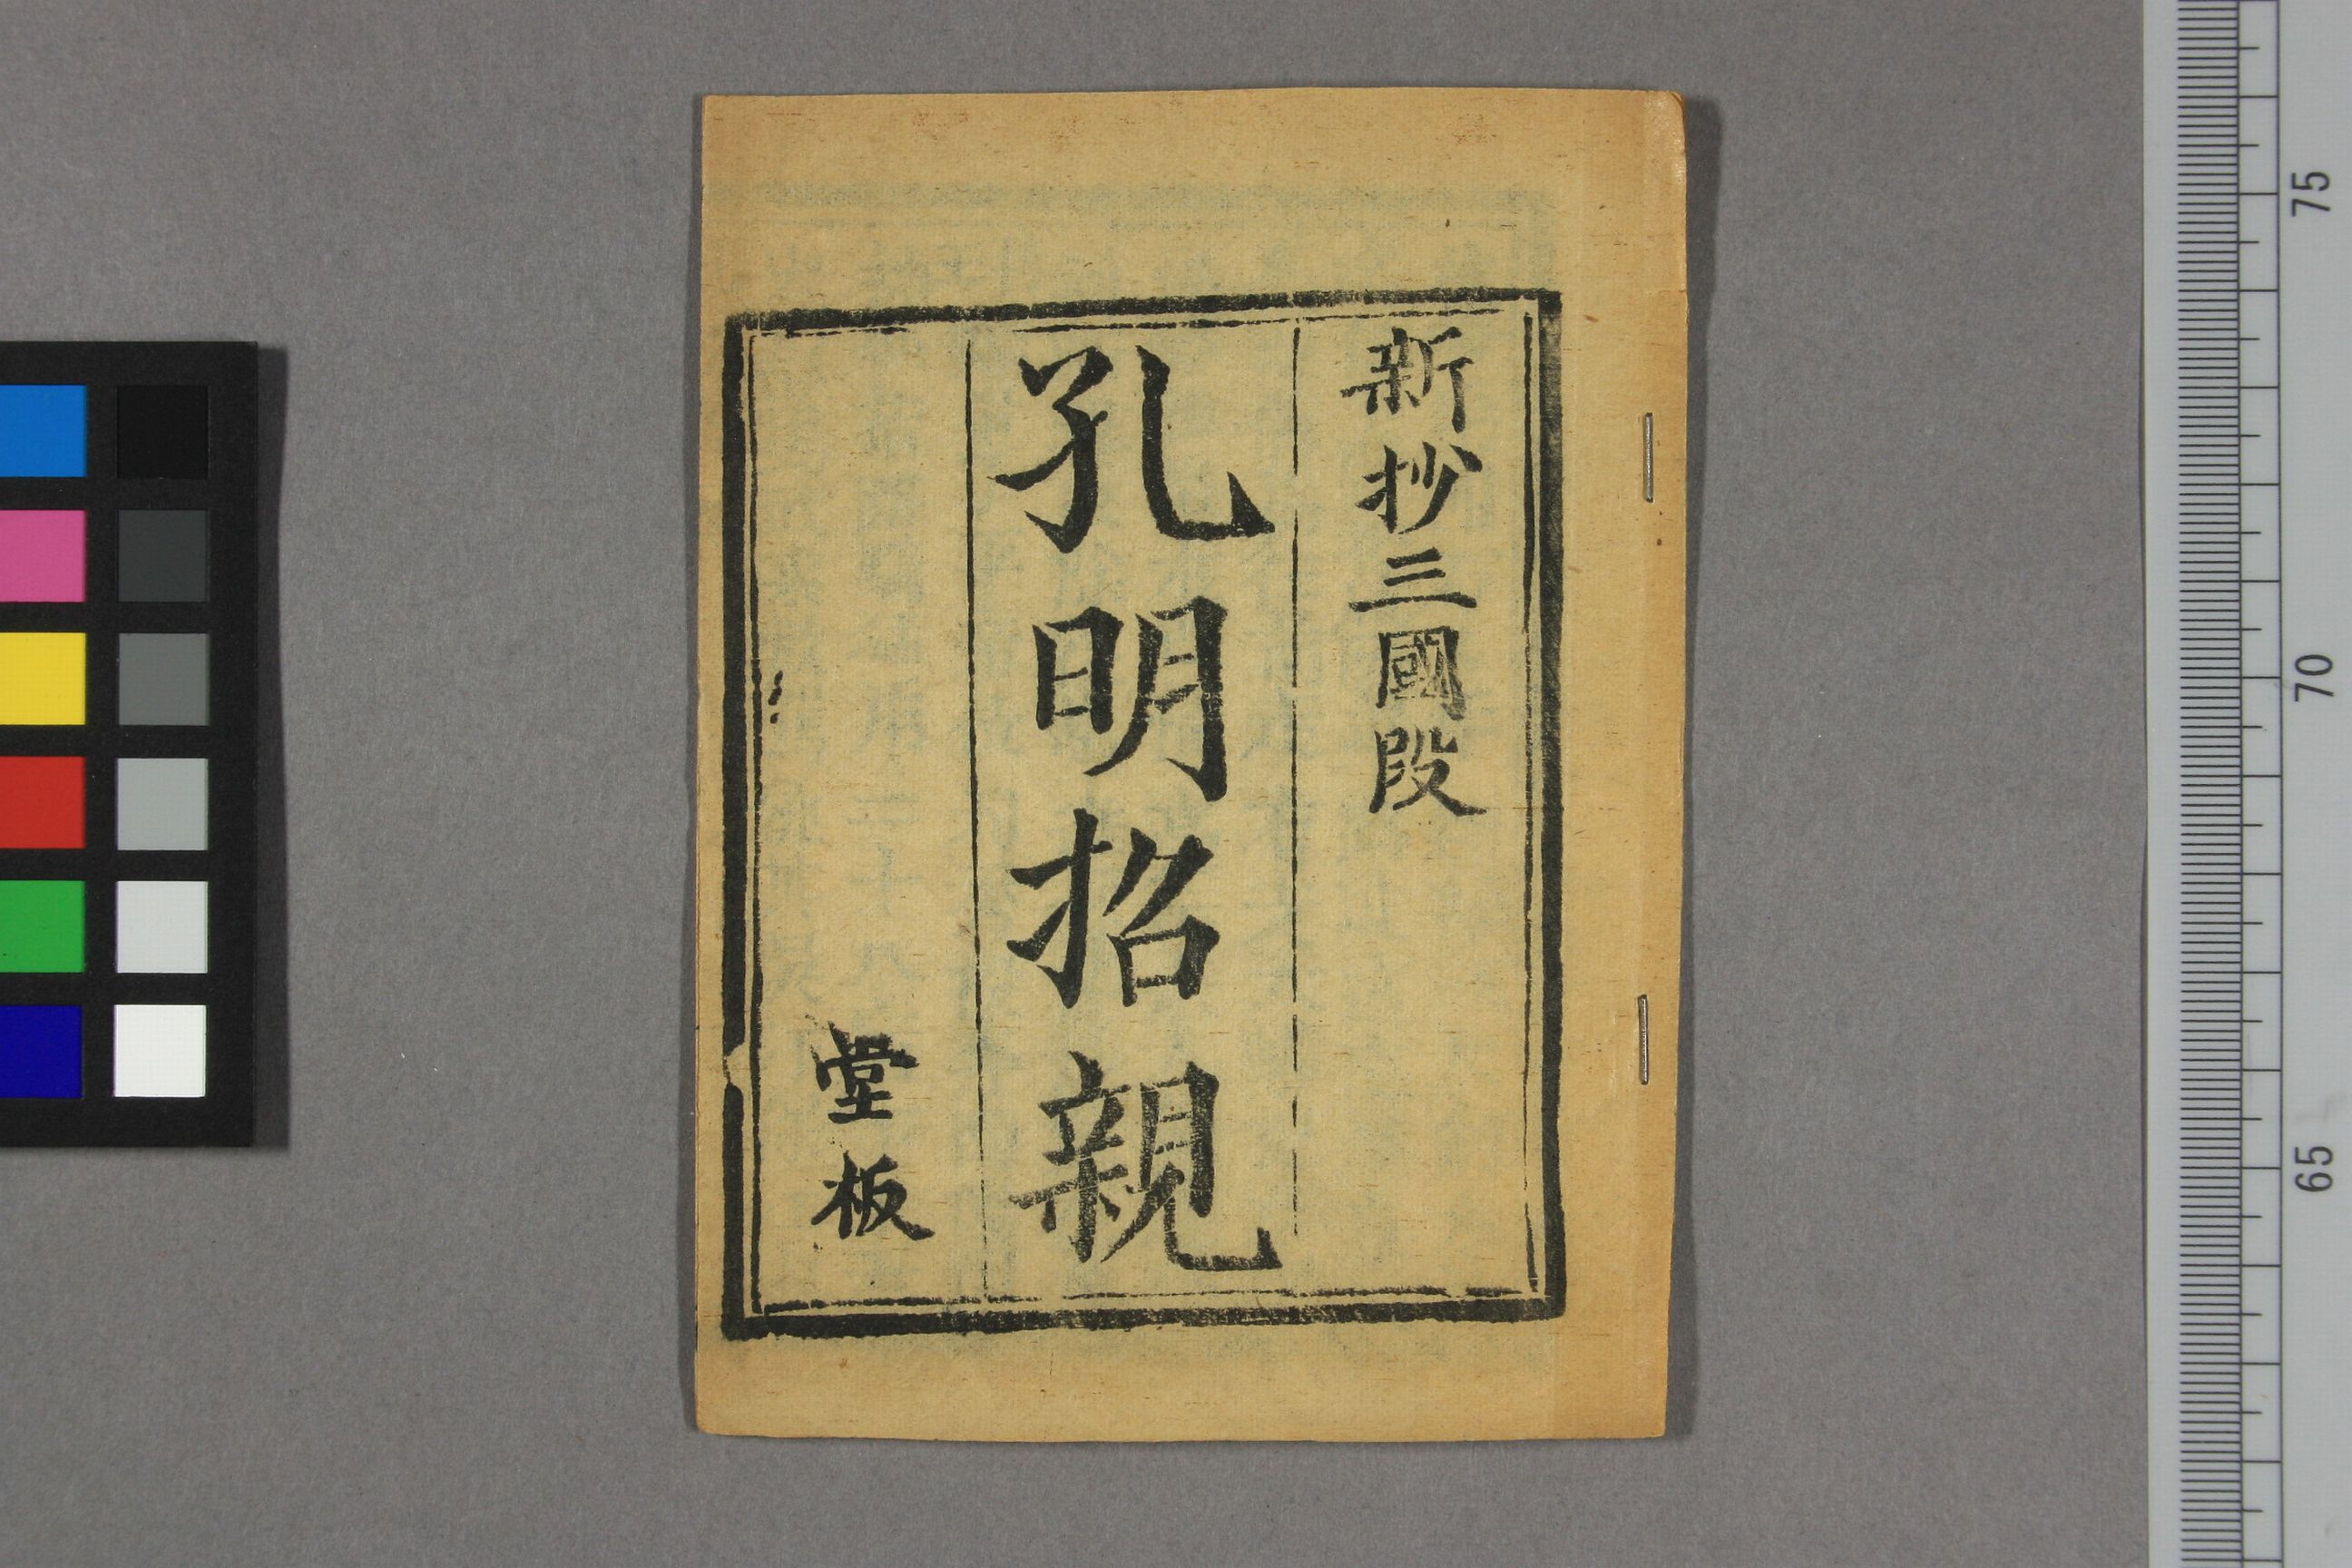 新抄三國段
孔明招親
堂板
75
70
65